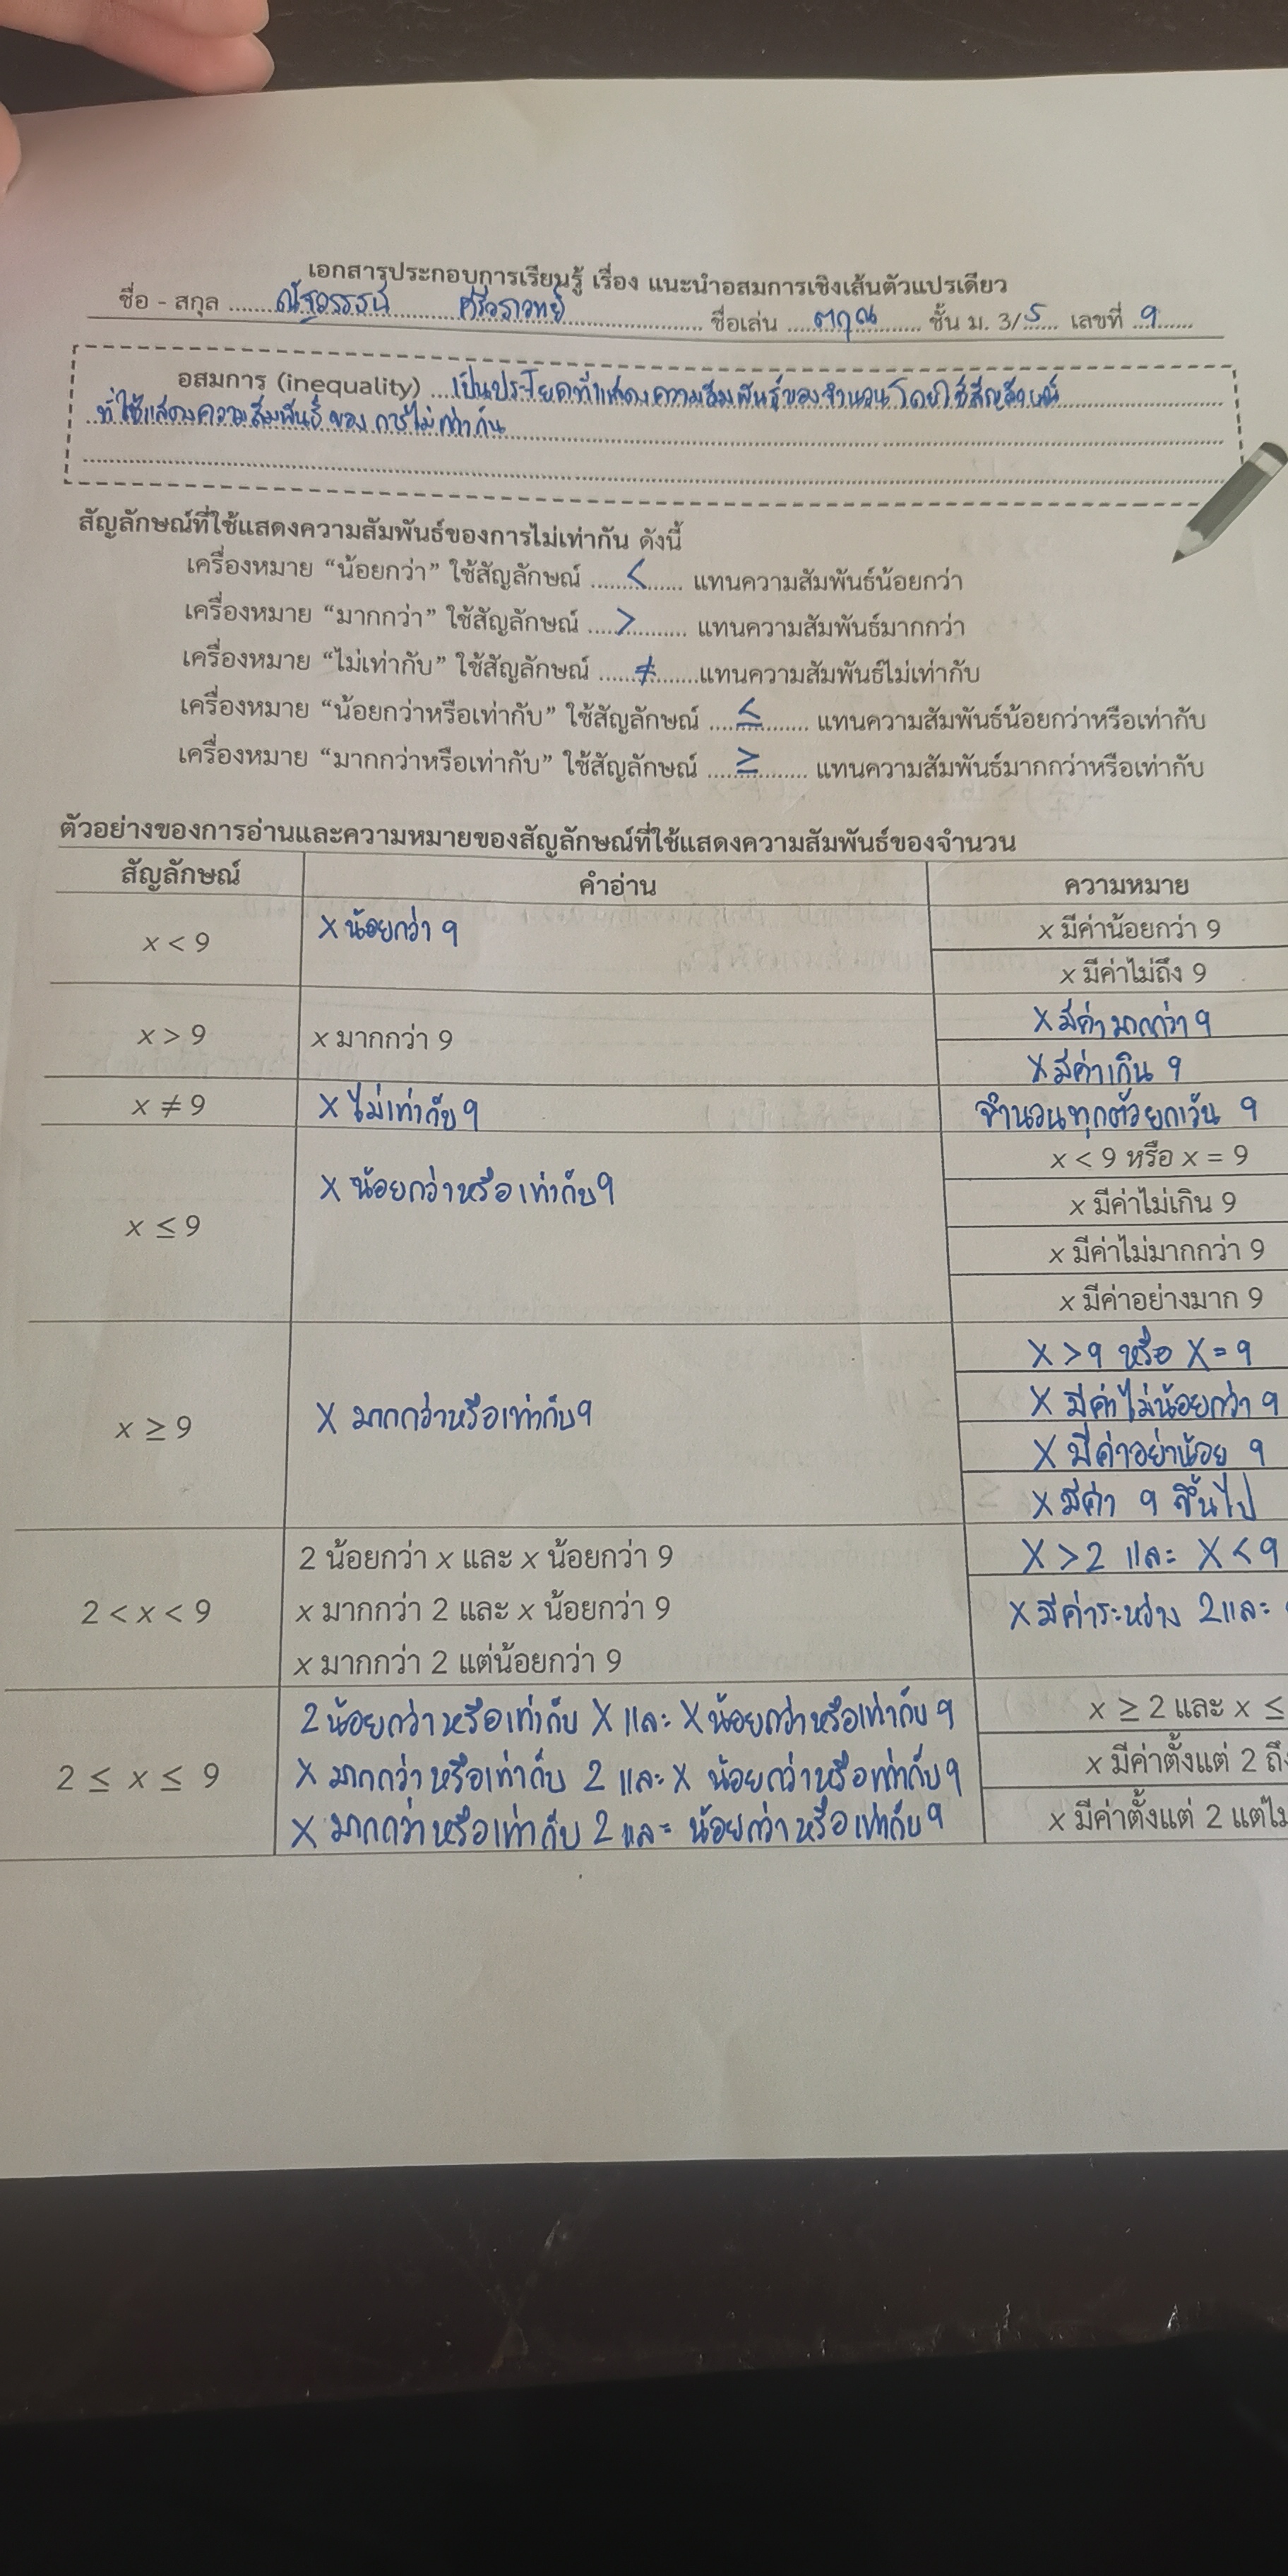 เอกสารประกอบการเรียนรู้ เรื่อง แนะนำอสมการเชิงเส้นตัวแปรเดียว
ชื่อ - สกุล ชื่อเล่น ตฤณ ชั้น ม. 3/5 เลขที่ 9
อสมการ (inequality) เป็นประโยคที่แสดงความสัมพันธ์ของจำนวนโดยใช้สัญลักษณ์
ที่ใช้แสดงความสัมพันธ์ของการไม่เท่ากัน
สัญลักษณ์ที่ใช้แสดงความสัมพันธ์ของการไม่เท่ากัน ดังนี้
เครื่องหมาย “น้อยกว่า” ใช้สัญลักษณ์ < แทนความสัมพันธ์น้อยกว่า
เครื่องหมาย “มากกว่า” ใช้สัญลักษณ์ > แทนความสัมพันธ์มากกว่า
เครื่องหมาย “ไม่เท่ากับ” ใช้สัญลักษณ์ ≠ แทนความสัมพันธ์ไม่เท่ากับ
เครื่องหมาย “น้อยกว่าหรือเท่ากับ” ใช้สัญลักษณ์ ≤ แทนความสัมพันธ์น้อยกว่าหรือเท่ากับ
เครื่องหมาย “มากกว่าหรือเท่ากับ” ใช้สัญลักษณ์ ≥ แทนความสัมพันธ์มากกว่าหรือเท่ากับ
ตัวอย่างของการอ่านและความหมายของสัญลักษณ์ที่ใช้แสดงความสัมพันธ์ของจำนวน
สัญลักษณ์ คำอ่าน ความหมาย
x < 9 x น้อยกว่า 9 x มีค่าน้อยกว่า 9
x มีค่าไม่ถึง 9
x > 9 x มากกว่า 9 x มีค่ามากกว่า 9
x มีค่าเกิน 9
x ≠ 9 x ไม่เท่ากับ 9 จำนวนทุกตัวยกเว้น 9
x ≤ 9 x น้อยกว่าหรือเท่ากับ 9 x < 9 หรือ x = 9
x มีค่าไม่เกิน 9
x มีค่าไม่มากกว่า 9
x มีค่าอย่างมาก 9
x ≥ 9 x มากกว่าหรือเท่ากับ 9 x > 9 หรือ x = 9
x มีค่าไม่น้อยกว่า 9
x มีค่าอย่าน้อย 9
x มีค่า 9 ขึ้นไป
2 < x < 9 2 น้อยกว่า x และ x น้อยกว่า 9 x > 2 และ x < 9
x มากกว่า 2 และ x น้อยกว่า 9 x มีค่าระหว่าง 2 และ
x มากกว่า 2 แต่น้อยกว่า 9
2 ≤ x ≤ 9 2 น้อยกว่าหรือเท่ากับ x และ x น้อยกว่าหรือเท่ากับ 9 x ≥ 2 และ x ≤
x มากกว่าหรือเท่ากับ 2 และ x น้อยกว่าหรือเท่ากับ 9 x มีค่าตั้งแต่ 2 ถึง
x มากกว่าหรือเท่ากับ 2 และ น้อยกว่าหรือเท่ากับ 9 x มีค่าตั้งแต่ 2 แต่ไม่